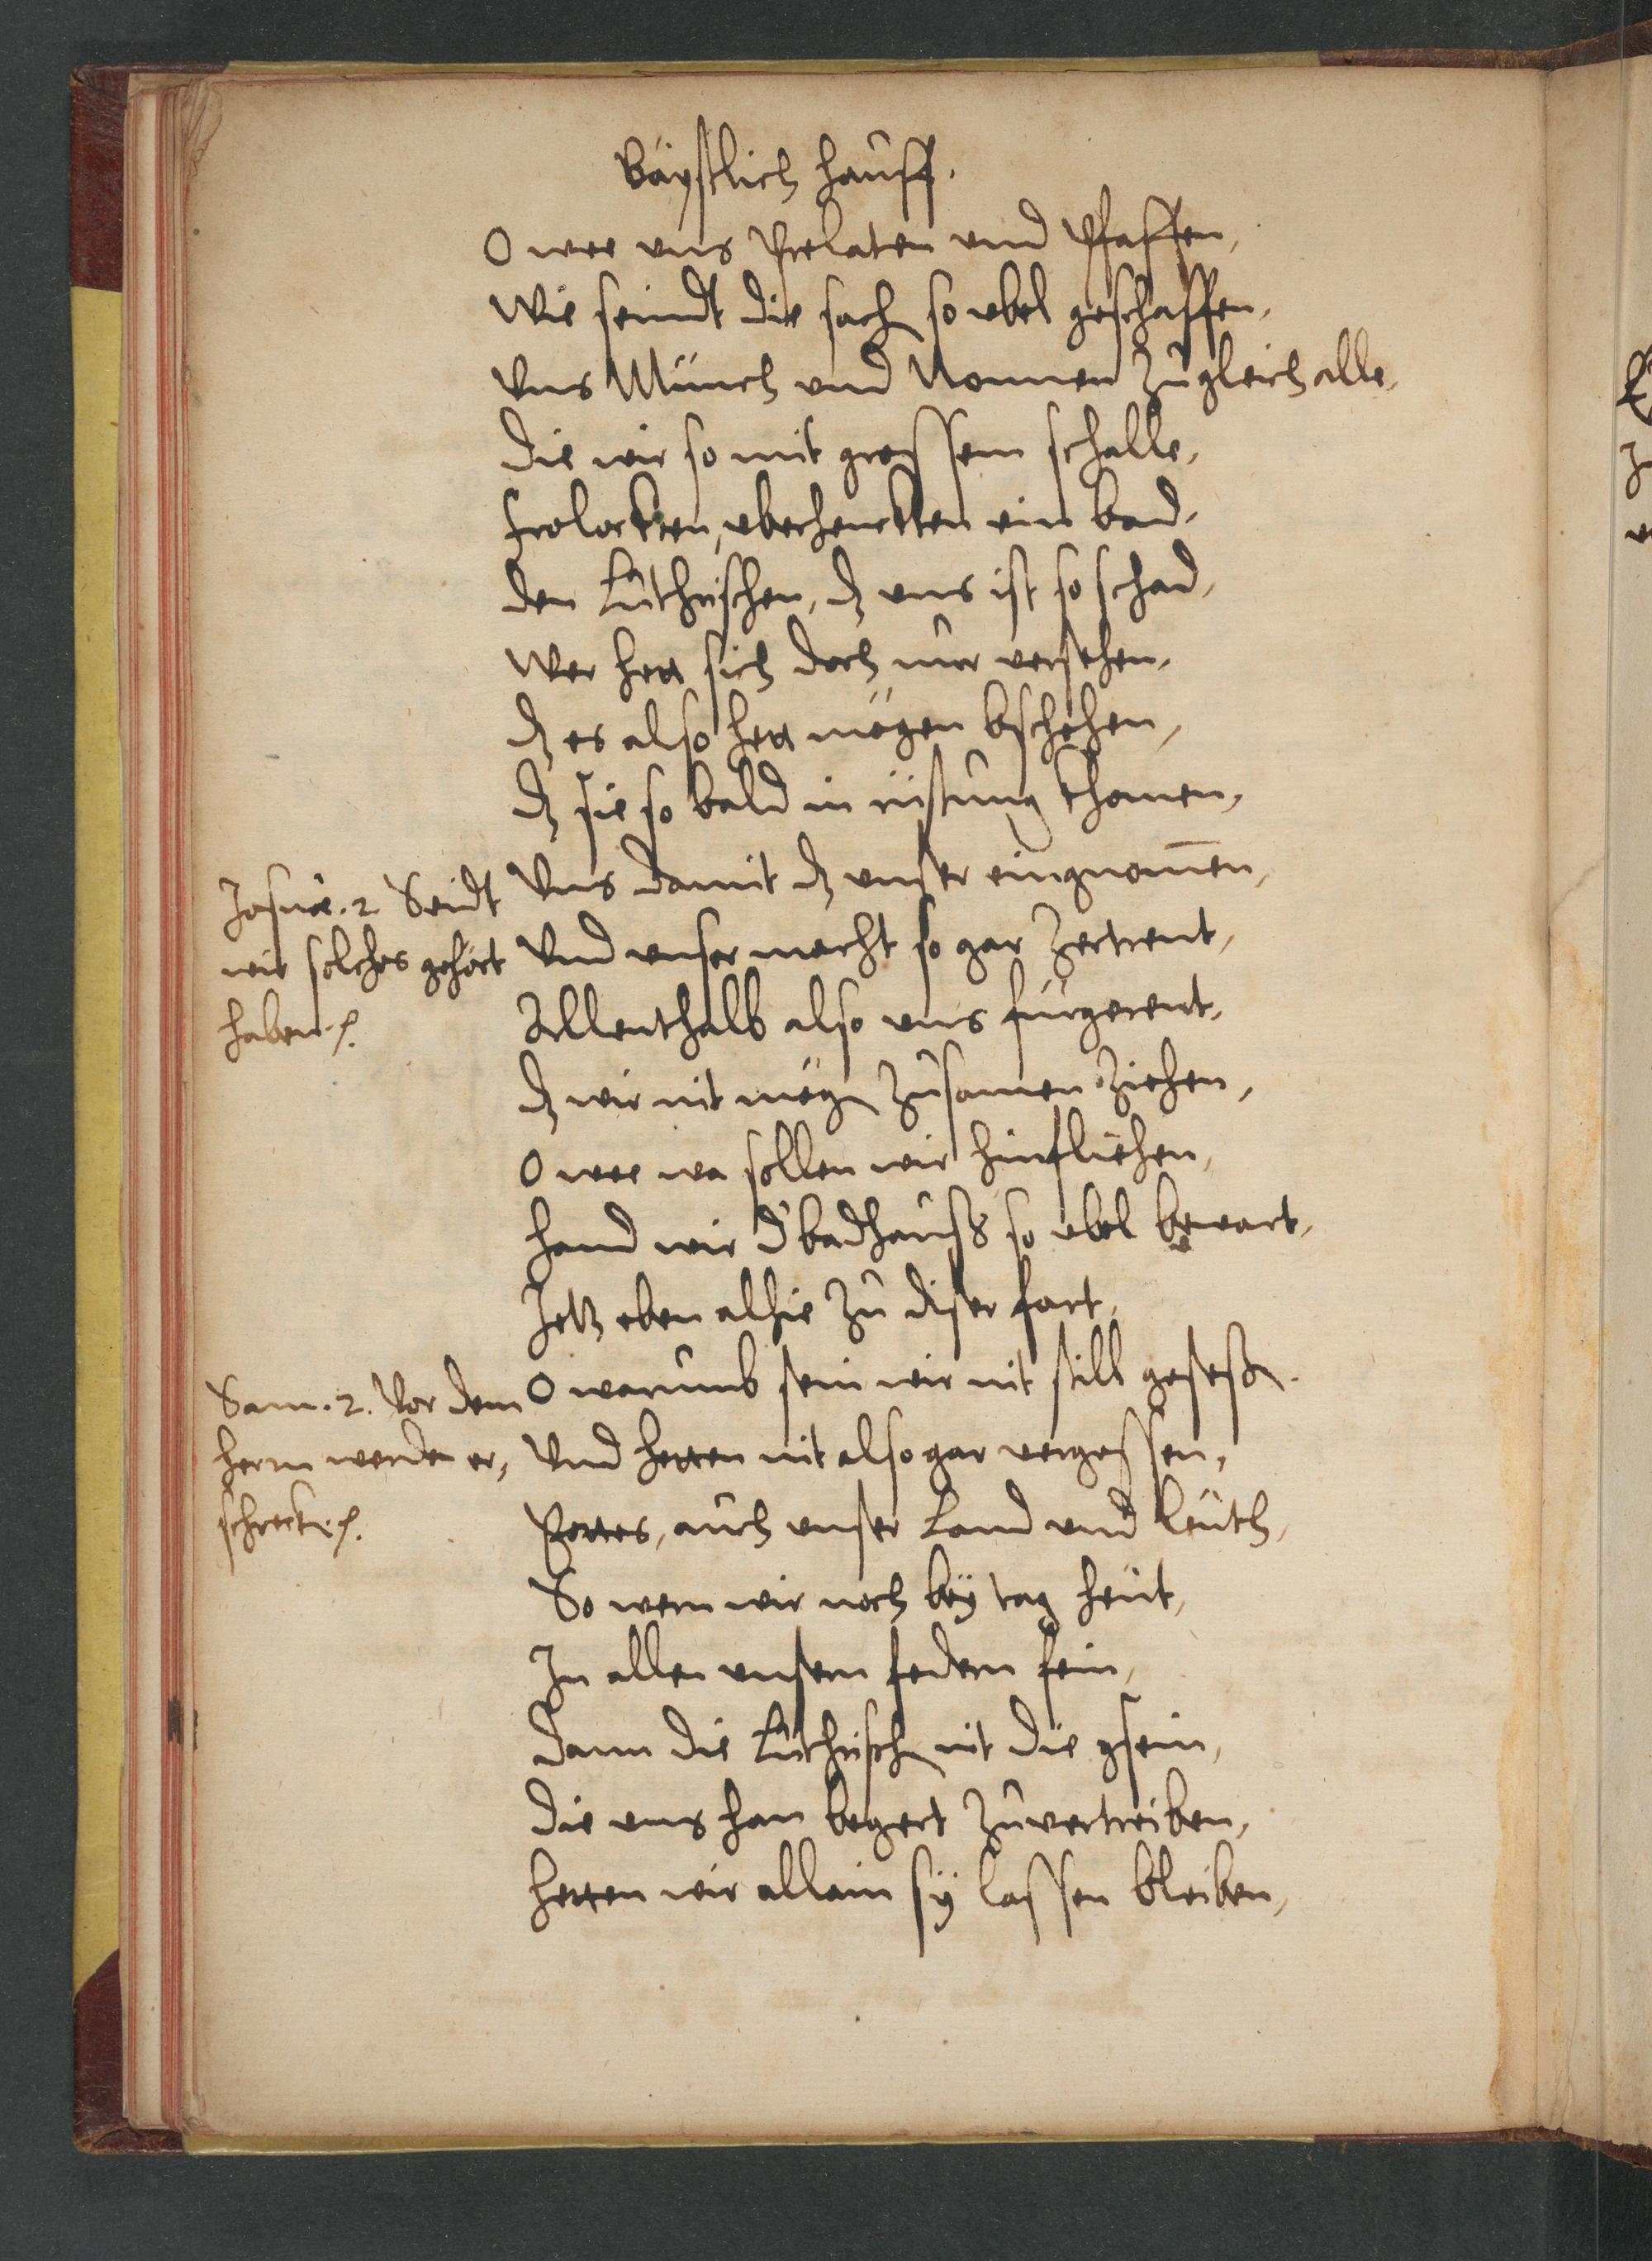 Bäystlich hauff.
O wee vns Prelaten vnd Pfaffen,
Wie seindt die sach so vbel geschaffen,
Vns Münch vnd Nonnen zugleich alle,
Die wir so mit grossem schalle,
Frolockten, vberhenckten ein bad,
den Luthrischen, dz vns ist so schad,
Wer hett sich doch nur versehen,
dz es also hett mögen bschehen,
dz sie so bald in rüstung khomen,
Vns damit dz vnser eingnom̄en,
Vnd vnser macht so gar zertrent,
Allenthalb also vns fürgerent,
dz wir nit mögn zusamen ziehen,
O wee wa sollen wir hinfliehen,
hand wir d' badhauß so vbel bewart,
Jetz eben alhie zu diser fart,
O warumb sein wir nit still gesessn.
Vnd hetten nit also gar vergessen,
Gottes, auch vnser Land vnd leüth,
So wern wir noch bey tag heüt,
In allen vnsern federn fein,
Dann die Luthrischn nit die gsein,
die vns han begert zuvertreiben,
Hetten wir allein sÿ lassen bleiben,
Josuæ. 2. Seidt
wir solches gehört
haben.
Sam. 2. Vor dem
herrn werden er,
schreckn.